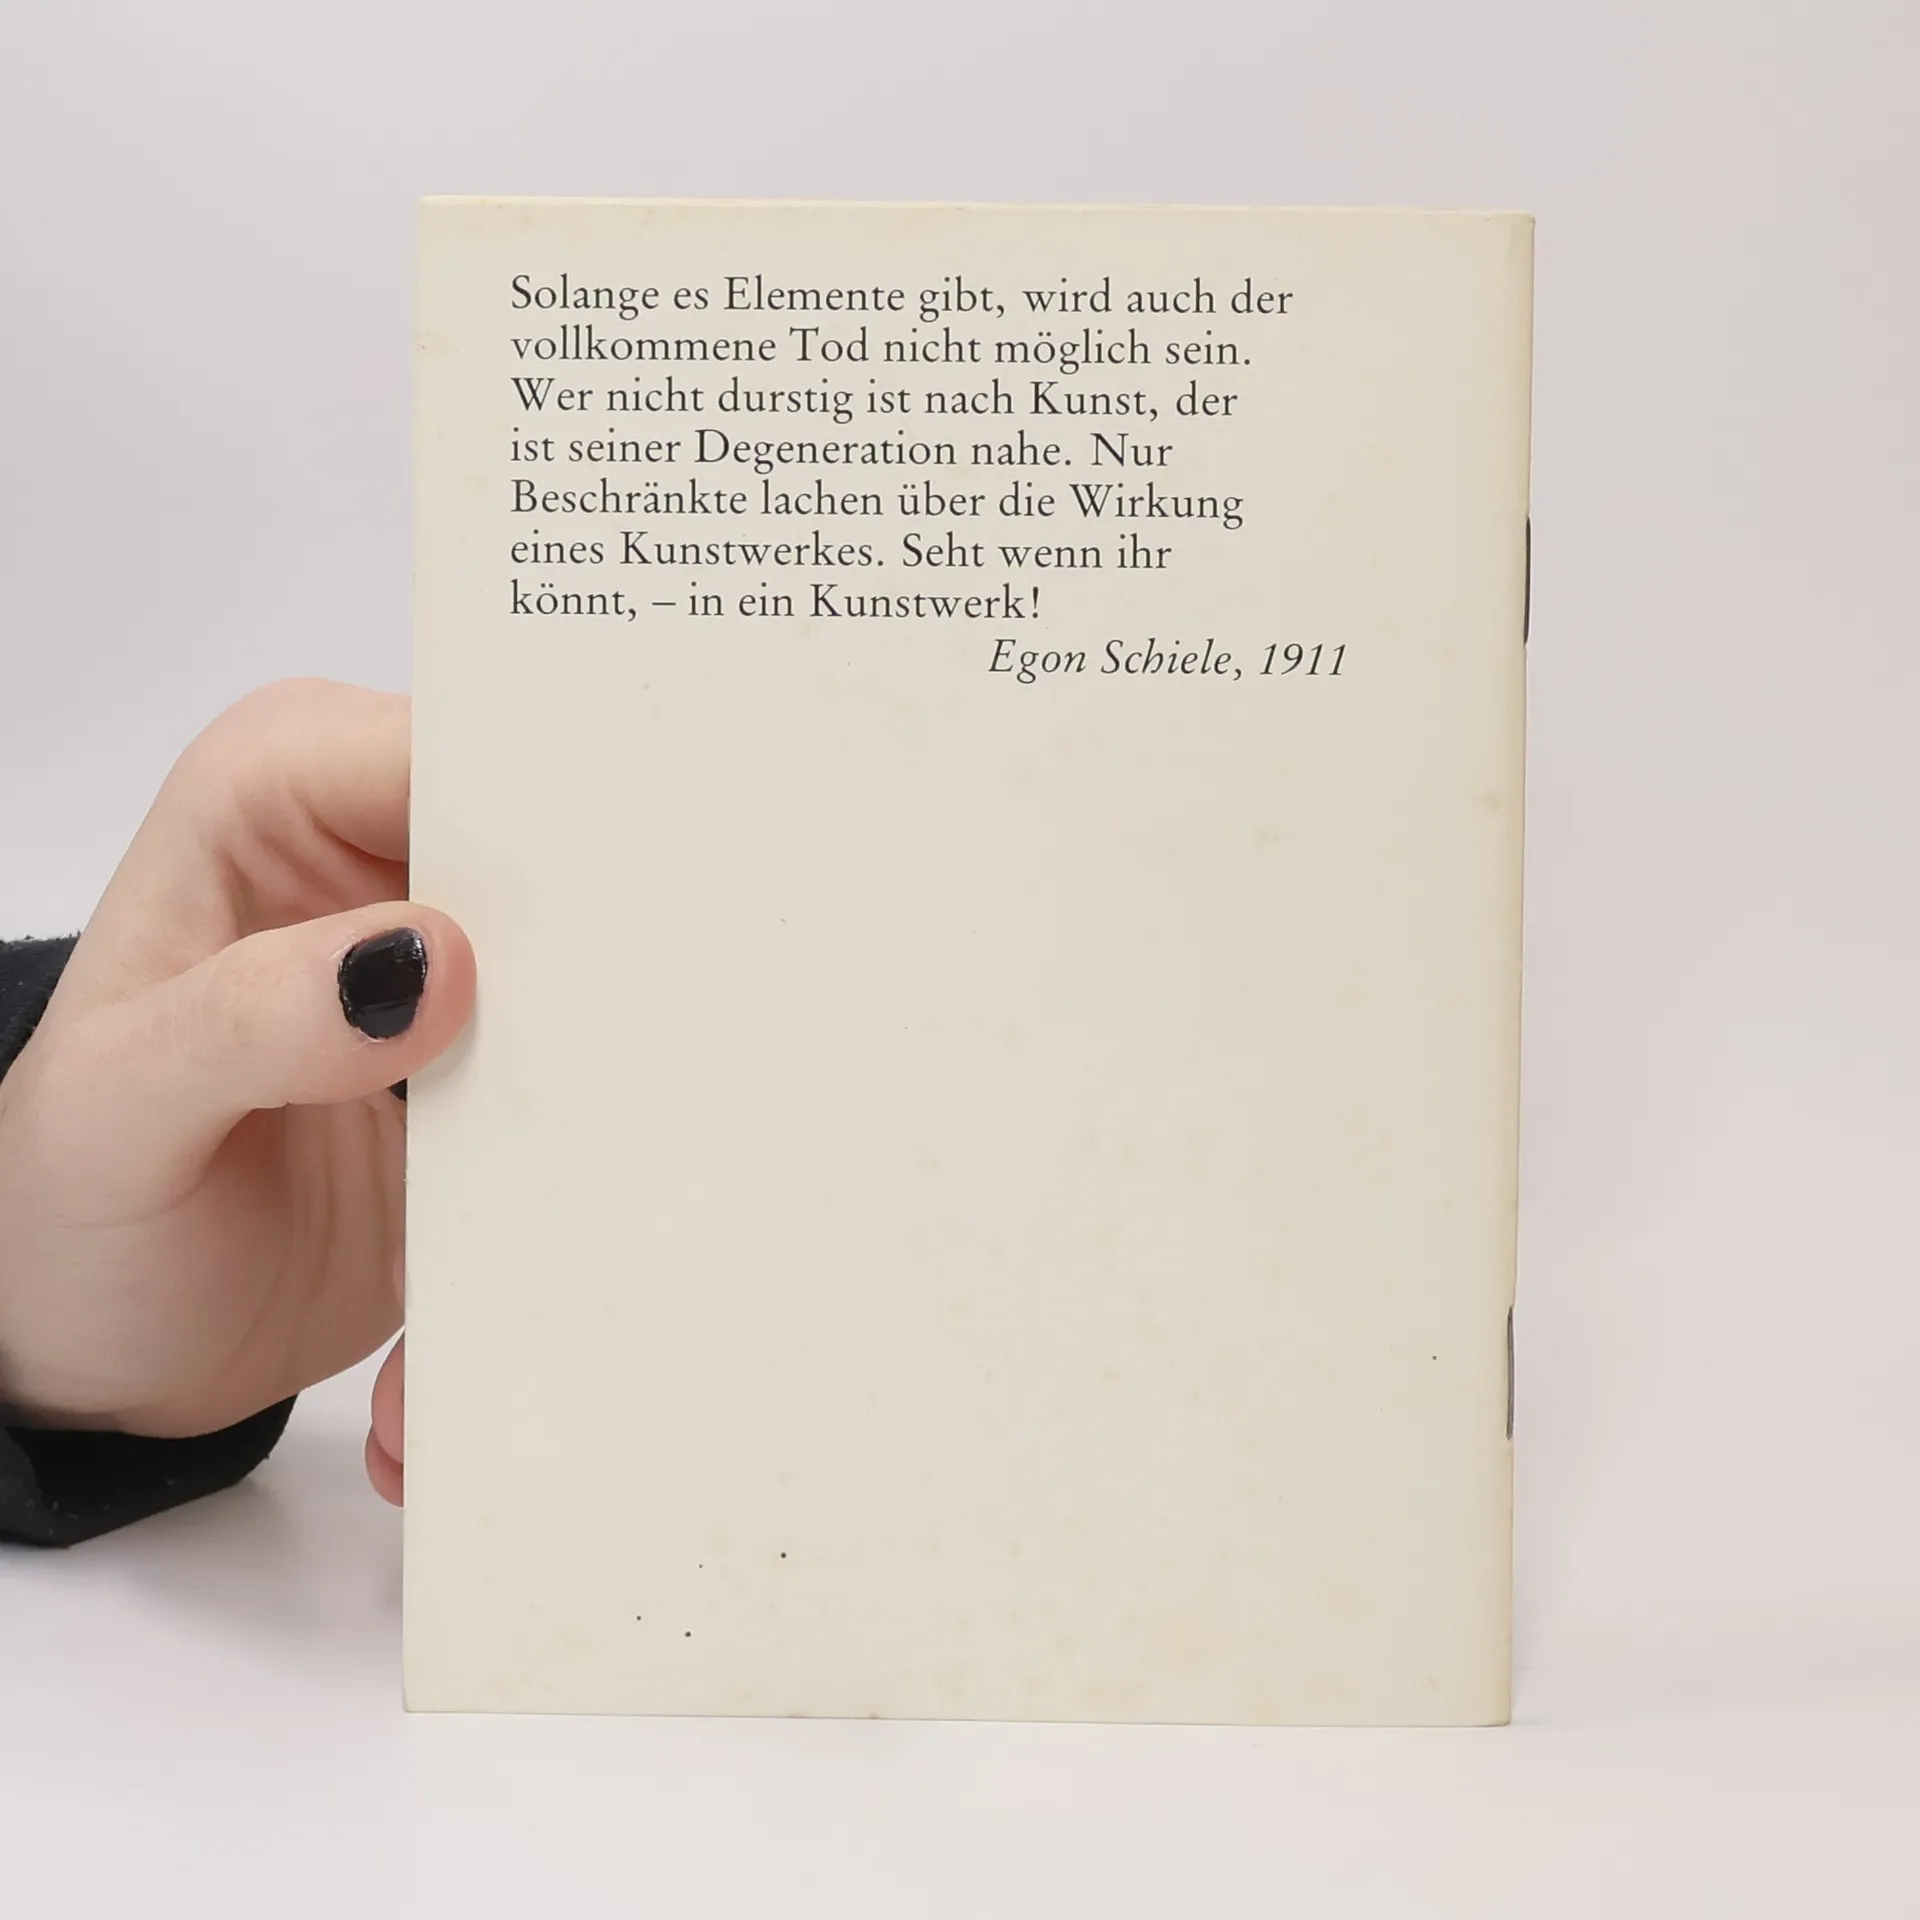 Solange es Elemente gibt, wird auch der
vollkommene Tod nicht möglich sein.
Wer nicht durstig ist nach Kunst, der
ist seiner Degeneration nahe. Nur
Beschränkte lachen über die Wirkung
eines Kunstwerkes. Seht wenn ihr
könnt, – in ein Kunstwerk!
Egon Schiele, 1911